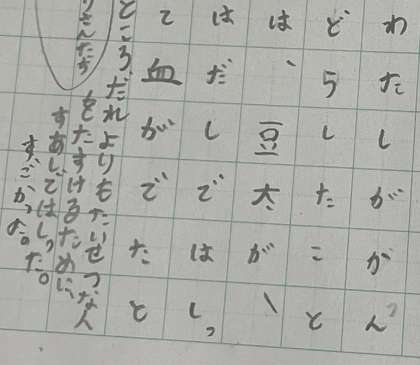 わたしががん
どうしたこと
は、豆太が、
はだしではしっ
て血がでたと
ところ
だれよりもたいせつな人
をたすけるために
すあしではしった。
すごかった。
さんたち